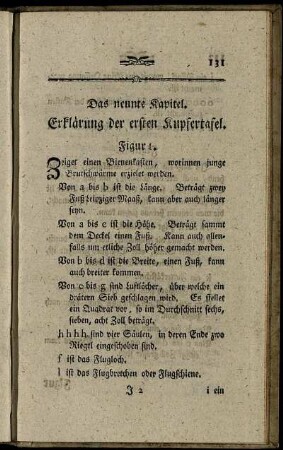 131
Das neunte Kapitel.
Erklärung der ersten Kupfertafel.
Figur 1.
Zeiget einen Bienenkasten, worinnen junge
Brutschwärme erzielet werden.
Von a bis b ist die Länge. Beträgt zwey
Fuß leipziger Maaß, kann aber auch länger
seyn.
Von a bis c ist die Höhe. Beträgt sammt
dem Deckel einen Fuß. Kann auch allen-
falls um etliche Zoll höher gemacht werden.
Von b bis d ist die Breite, einen Fuß, kann
auch breiter kommen.
Von e bis g sind Luftlöcher, über welche ein
drätern Sieb geschlagen wird. Es stellet
ein Quadrat vor, so im Durchschnitt sechs,
sieben, acht Zoll beträgt.
h h h h sind vier Säulen, in deren Ende zwo
Riegel eingeschoben sind.
f ist das Flugloch.
l ist das Flugbretchen oder Flugschiene.
J 2
i ein